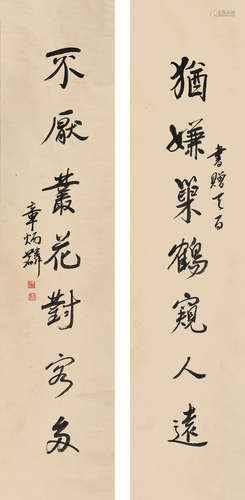 猶嫌巢鶴窺人遠
書贈天百
不厭叢花對客多
章炳麟